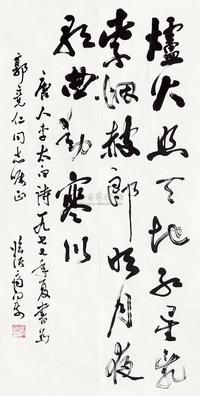 爐火照天地紅星亂
紫烟赧郎明月夜
歌曲動寒川
唐人李太白诗一九七七年夏書為
郭堯仁同志嘱正